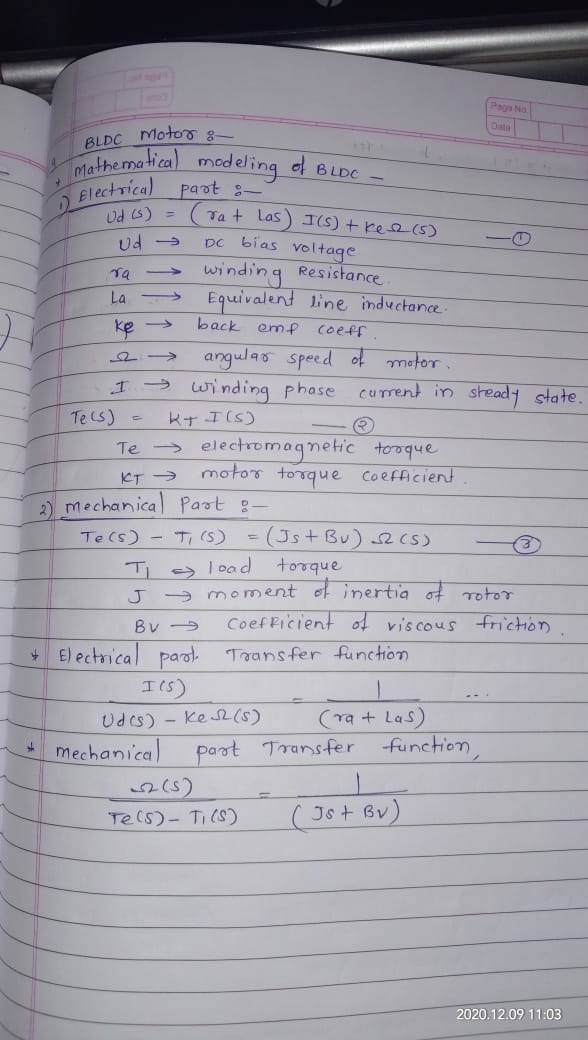 Page No.
Date
* BLDC Motor :-
* Mathematical modeling of BLDC -
1) Electrical part :-
Ud(s) = (ra + Las) I(s) + keΩ(s) — ①
Ud → DC bias voltage
ra → winding Resistance.
La → Equivalent line inductance.
ke → back emf coeff.
Ω → angular speed of motor.
I → winding phase current in steady state.
Te(s) = KT I(s) — ②
Te → electromagnetic torque
KT → motor torque coefficient.
2) mechanical Part :-
Te(s) - T1(s) = (Js + Bv) Ω(s) — ③
T1 → load torque
J → moment of inertia of rotor
Bv → coefficient of viscous friction.
* Electrical part Transfer function
I(s) / Ud(s) - KeΩ(s) = 1 / (ra + Las) ...
* mechanical part Transfer function,
Ω(s) / Te(s) - T1(s) = 1 / (Js + Bv)
2020.12.09 11:03